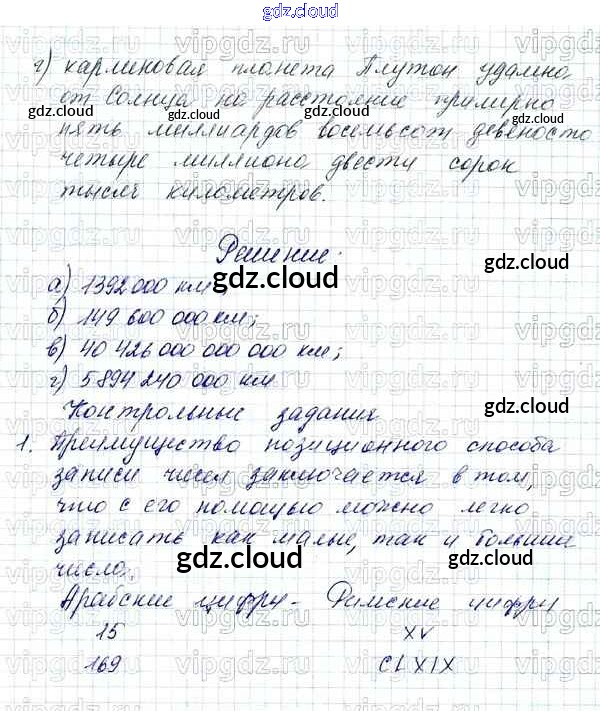 gdz.cloud
г) карликовая планета Плутон удалена
от Солнца на расстояние примерно
пять миллиардов восемьсот девяносто
четыре миллиона двести сорок
тысяч километров.
Решение:
а) 1392 000 км
б) 149 600 000 км;
в) 40 426 000 000 000 км;
г) 5 894 240 000 км
Контрольные задания
1. Преимущество позиционного способа
записи чисел заключается в том,
что с его помощью можно легко
записать как малые, так и большие
числа.
Арабские цифры - Римские цифры
15 XV
169 CLXIX